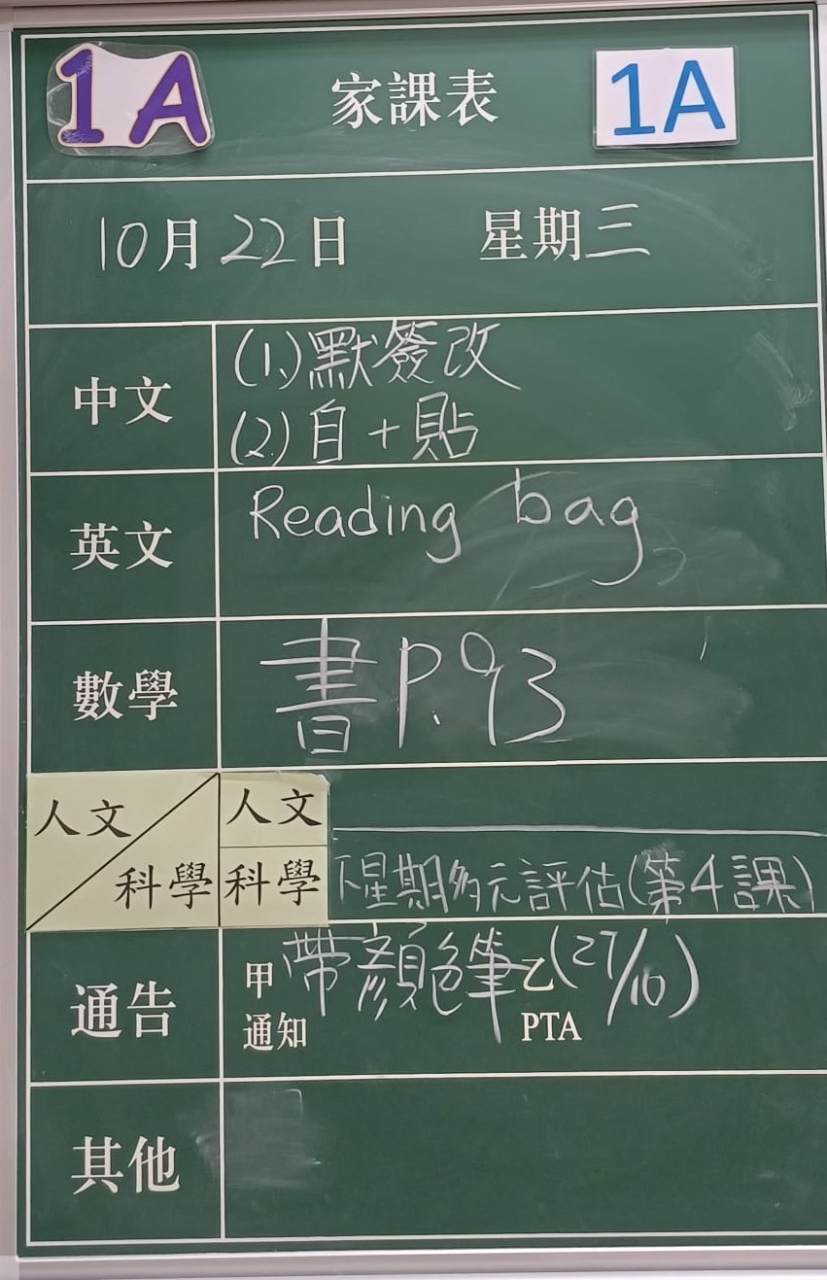 1A 家課表 1A
10月22日 星期三
中文
(1.)默簽改
(2.)自+貼
英文
Reading bag
數學
書P.93
人文
科學
人文
科學
下星期多元評估(第4課)
通告
甲 帶顏色筆 乙 (27/10)
通知 PTA
其他